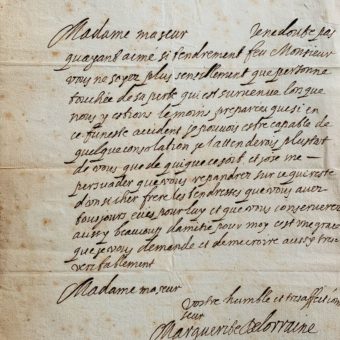 Madame maseur Jenedoute pas
quayant aime si tendrement feu Monsieur
vous ne soyez plus sensiblement que personne
touchée desa perte qui est survenue lorsque
nous y estions le moins preparées que si en
ce funeste accident je pouvois estre capable de
quelque consolation je lattenderois plustost
de vous que de qui que ce soit et jose me
persuader que vous repandrez sur ce qui reste
dun si cher frere les tendresses que vous avez
tousjours eues pour luy et que vous conserverez
aussy beaucoup damitié pour moy cest une grace
que je vous demande et deme croire aussy tres
veritablement
Madame maseur
vostre humble et tres affectionée
seur
Marguerite de lorraine